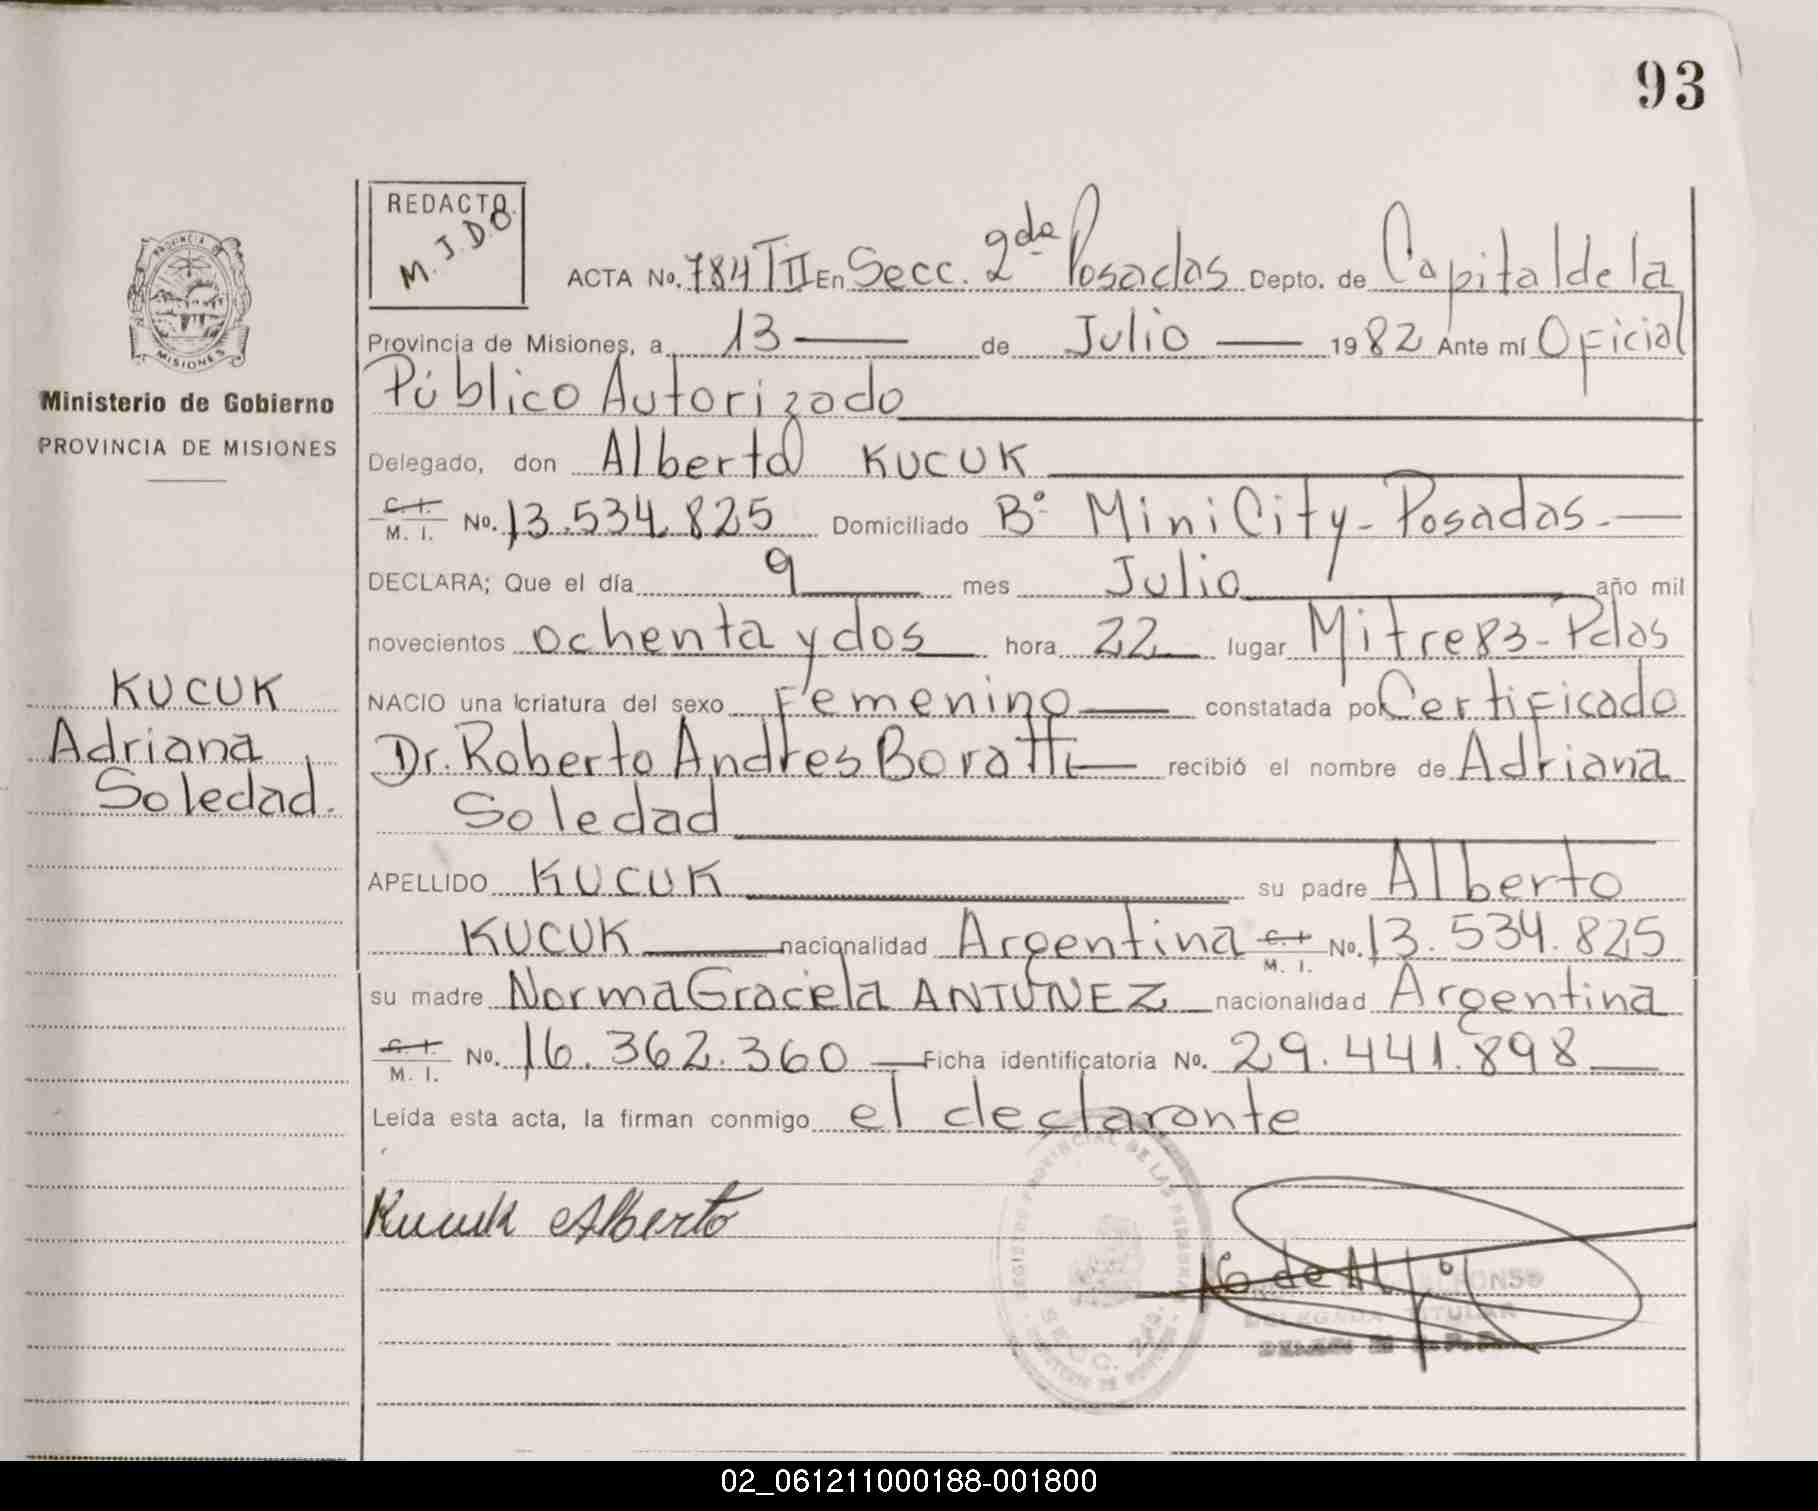 93
REDACTO.
M.J.D.O
PROVINCIA DE
MISIONES
Ministerio de Gobierno
PROVINCIA DE MISIONES
KUCUK
Adriana
Soledad.
ACTA No. 784 TII En Secc. 2da Posadas Depto. de Capital de la
Provincia de Misiones, a 13 de Julio 1982 Ante mí Oficial
Público Autorizado
Delegado, don Alberto KUCUK
C. I. M. I. No. 13.534.825 Domiciliado Bº Mini City - Posadas.
DECLARA; Que el día 9 mes Julio año mil
novecientos ochenta y dos hora 22 lugar Mitre 83 - Pdas
NACIO una criatura del sexo Femenino constatada por Certificado
Dr. Roberto Andres Boratti recibió el nombre de Adriana
Soledad
APELLIDO KUCUK su padre Alberto
KUCUK nacionalidad Argentina C. I. M. I. No. 13.534.825
su madre Norma Graciela ANTUNEZ nacionalidad Argentina
C. I. M. I. No. 16.362.360 Ficha identificatoria No. 29.441.898
Leída esta acta, la firman conmigo el declarante
Kucuk Alberto
REGISTRO PROVINCIAL DE LAS PERSONAS
SECC. 2da.
DELEGADA TITULAR
02_061211000188-001800